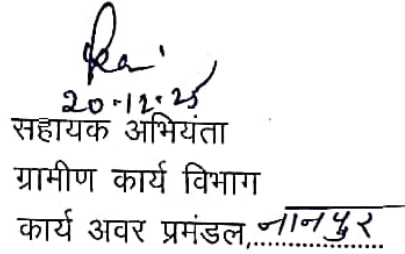 20-12-25
सहायक अभियंता
ग्रामीण कार्य विभाग
कार्य अवर प्रमंडल,नानपुर